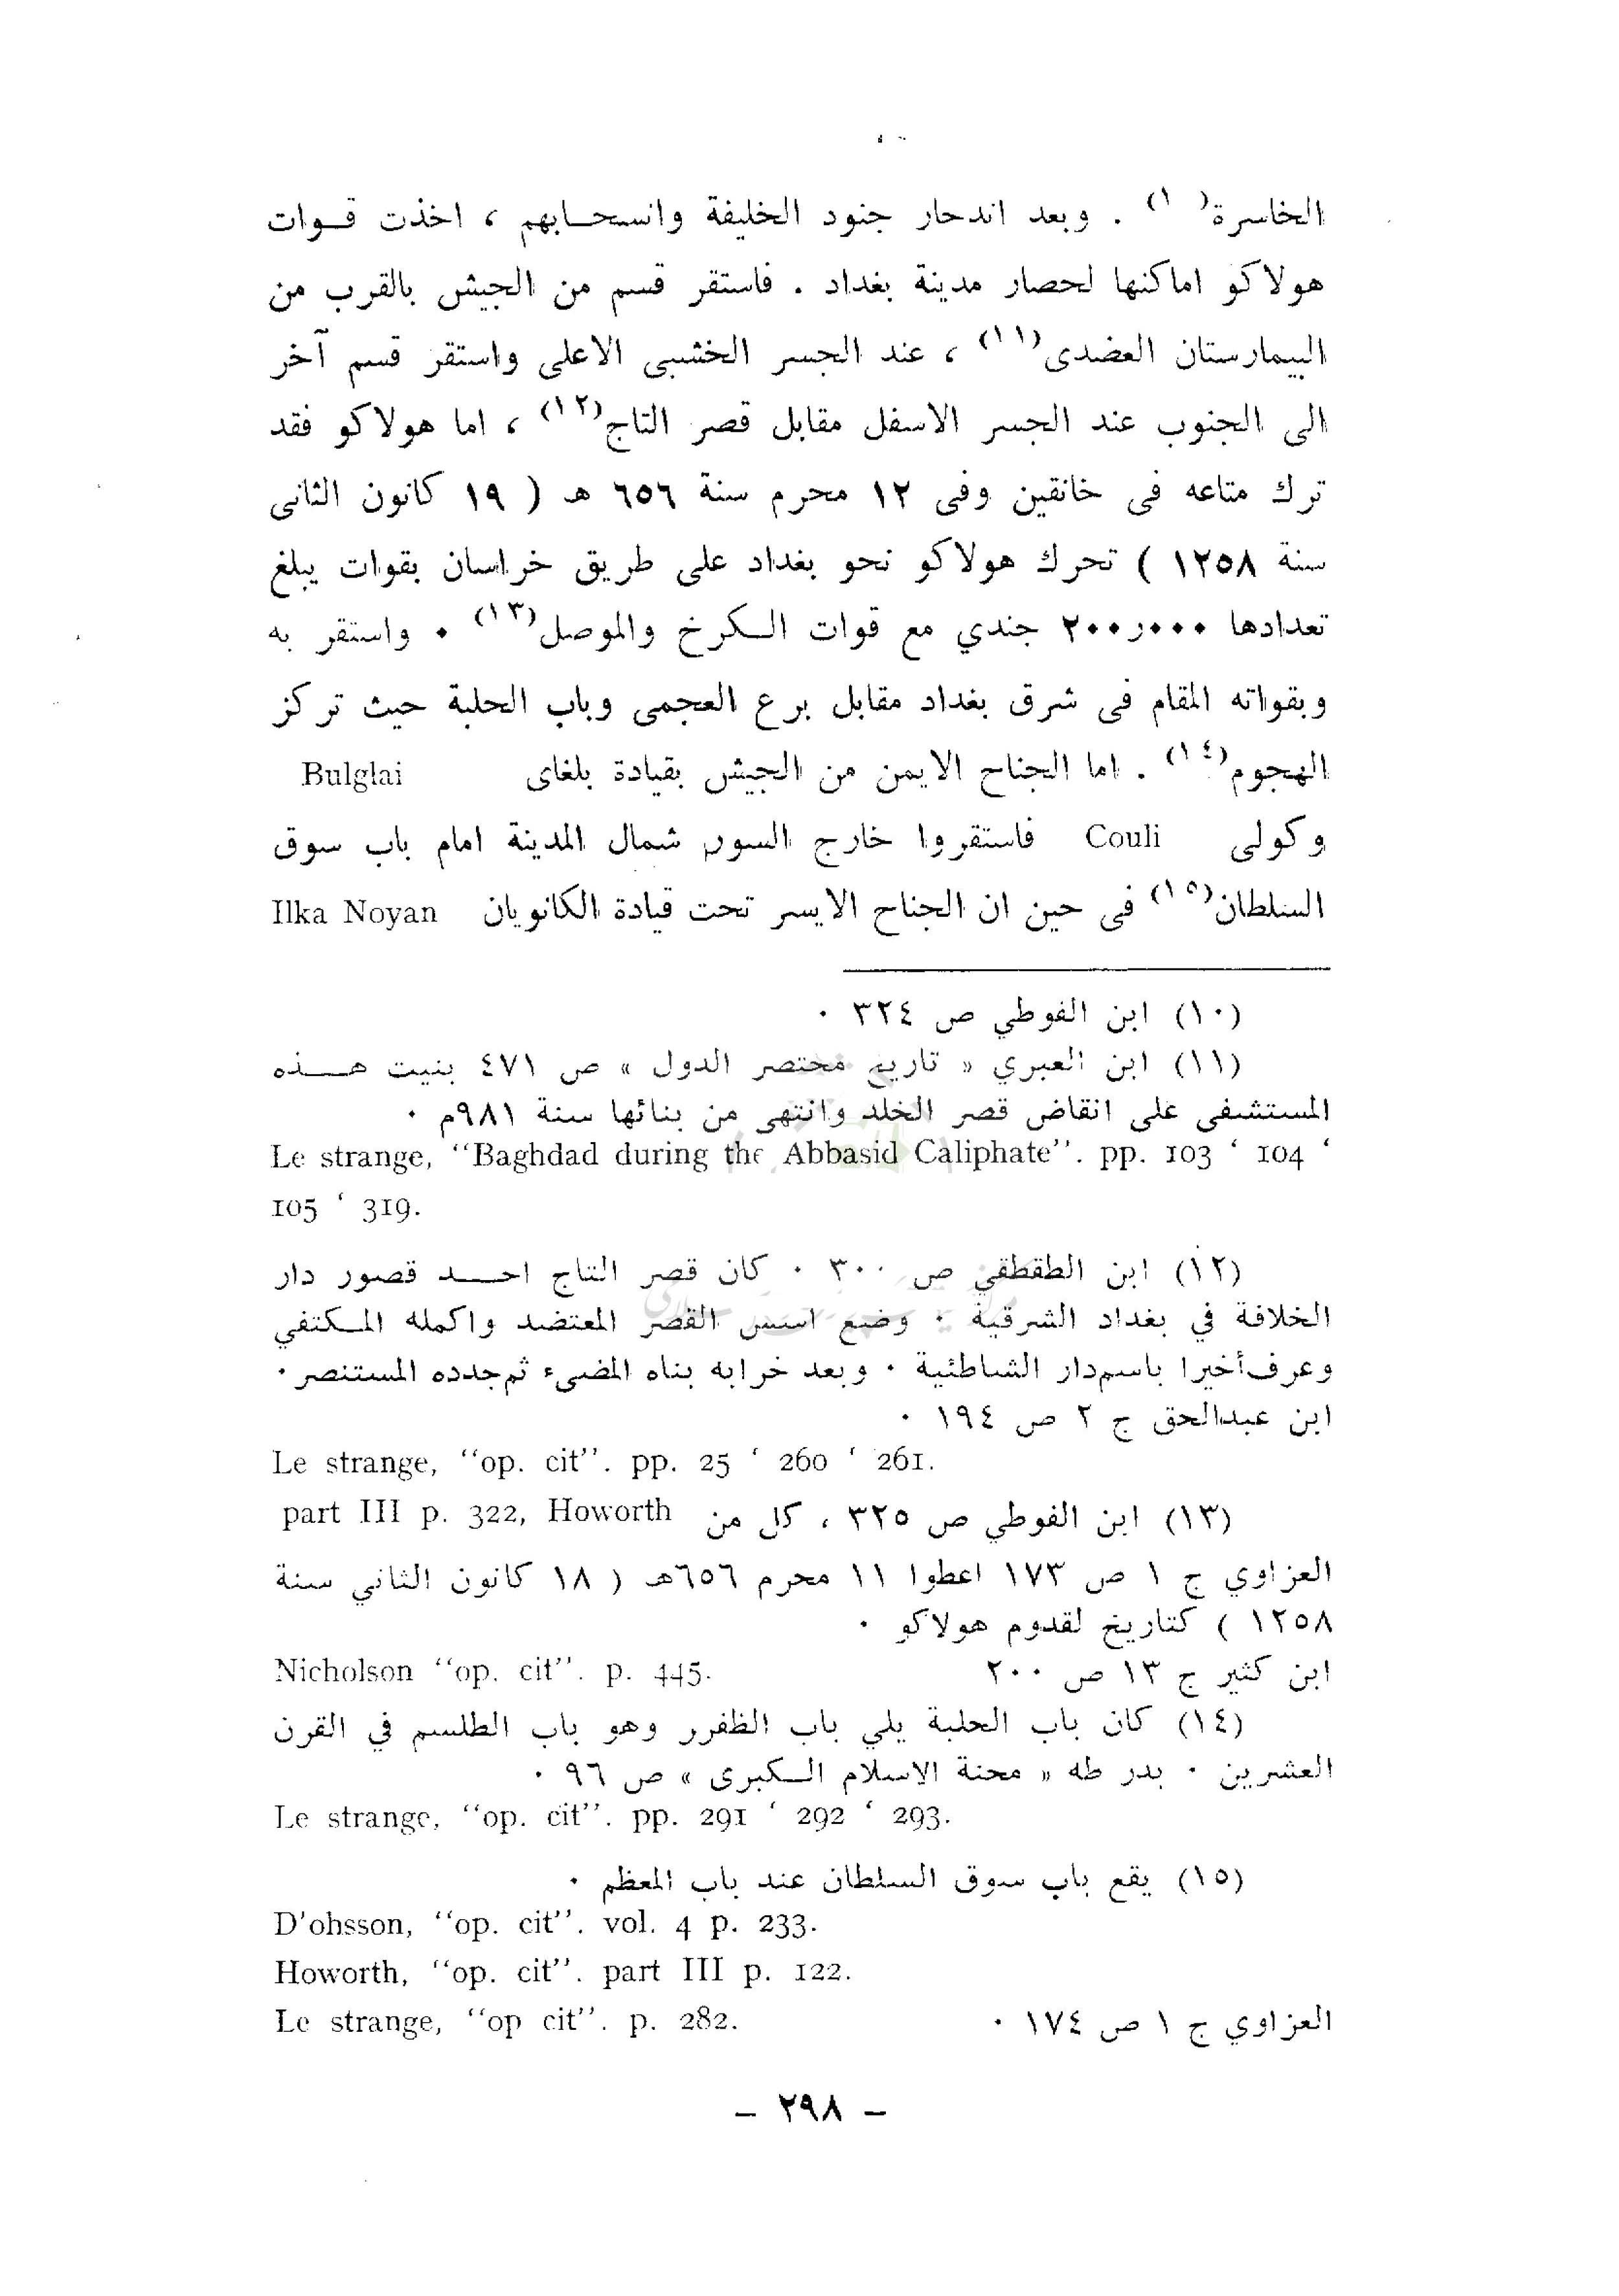 الخاسرة( ١) . وبعد اندحار جنود الخليفة وانسحـابهم ، اخذت قـوات
هولاكو اماكنها لحصار مدينة بغداد . فاستقر قسم من الجيش بالقرب من
البيمارستان العضدى(١١) ، عند الجسر الخشبى الاعلى واستقر قسم آخر
الى الجنوب عند الجسر الاسفل مقابل قصر التاج(١٢) ، اما هولاكو فقد
ترك متاعه فى خانقين وفى ١٢ محرم سنة ٦٥٦ هـ ( ١٩ كانون الثانى
سنة ١٢٥٨ ) تحرك هولاكو نحو بغداد على طريق خراسان بقوات يبلغ
تعدادها ٢٠٠ر٠٠٠ جندي مع قوات الـكرخ والموصل(١٣) . واستقر به
وبقواته المقام فى شرق بغداد مقابل برع العجمى وباب الحلبة حيث تركز
الهجوم(١٤) . اما الجناح الايمن من الجيش بقيادة بلغاى Bulglai
وكولى Couli فاستقروا خارج السور شمال المدينة امام باب سوق
السلطان(١٥) فى حين ان الجناح الايسر تحت قيادة الكانويان Ilka Noyan
(١٠) ابن الفوطي ص ٣٢٤ .
(١١) ابن العبري « تاريخ مختصر الدول » ص ٤٧١ بنيت هـــذه
المستشفى على انقاض قصر الخلد وانتهى من بنائها سنة ٩٨١م .
Le strange, “Baghdad during the Abbasid Caliphate”. pp. 103 ‘ 104 ‘
105 ‘ 319.
(١٢) ابن الطقطقي ص ٣٠٠ . كان قصر التاج احـــد قصور دار
الخلافة في بغداد الشرقية . وضع اسس القصر المعتضد واكمله المـكتفي
وعرف أخيرا باسم دار الشاطئية . وبعد خرابه بناه المضىء ثم جدده المستنصر .
ابن عبدالحق ج ٢ ص ١٩٤ .
Le strange, “op. cit”. pp. 25 ‘ 260 ‘ 261.
(١٣) ابن الفوطي ص ٣٢٥ ، كل من part III p. 322, Howorth
العزاوي ج ١ ص ١٧٣ اعطوا ١١ محرم ٦٥٦هـ ( ١٨ كانون الثاني سنة
١٢٥٨ ) كتاريخ لقدوم هولاكو .
ابن كثير ج ١٣ ص ٢٠٠ Nicholson “op. cit”. p. 445.
(١٤) كان باب الحلبة يلي باب الظفرر وهو باب الطلسم في القرن
العشرين . بدر طه « محنة الاسلام الـكبرى » ص ٩٦ .
Le strange, “op. cit”. pp. 291 ‘ 292 ‘ 293.
(١٥) يقع باب سوق السلطان عند باب المعظم .
D’ohsson, “op. cit”. vol. 4 p. 233.
Howorth, “op. cit”. part III p. 122.
العزاوي ج ١ ص ١٧٤ . Le strange, “op cit”. p. 282.
– ٢٩٨ –